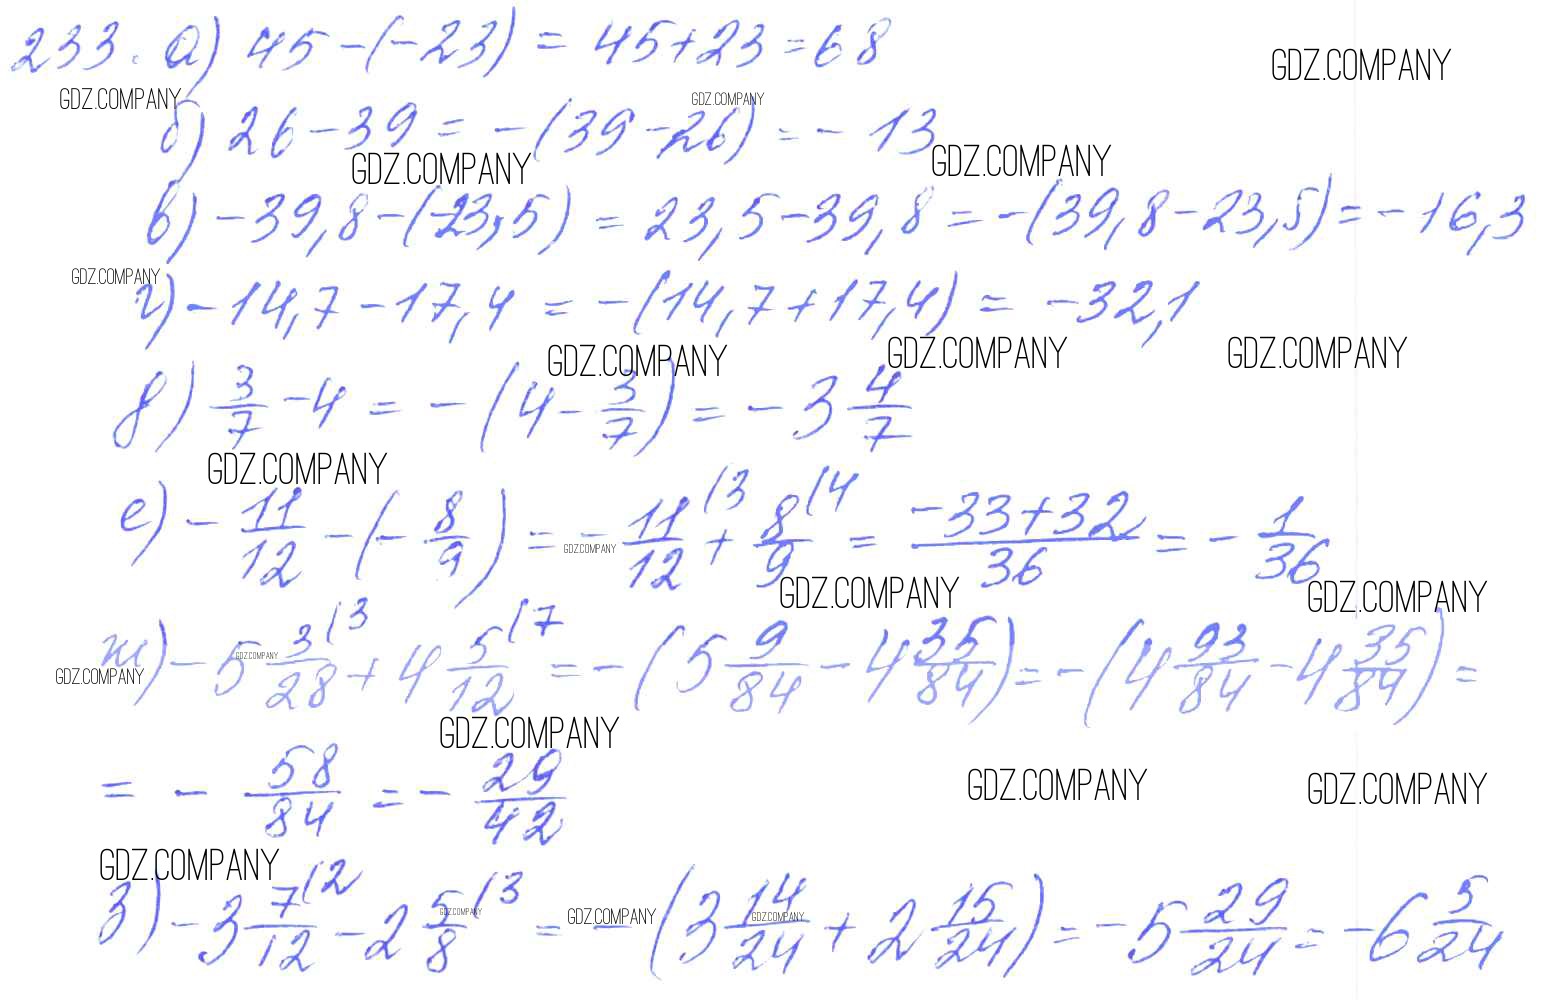 233. а) 45-(-23) = 45+23 = 68
GDZ.COMPANY
GDZ.COMPANY GDZ.COMPANY
б) 26-39 = -(39-26) = -13
GDZ.COMPANY GDZ.COMPANY
в) -39,8-(-23,5) = 23,5-39,8 = -(39,8-23,5) = -16,3
GDZ.COMPANY
г) -14,7-17,4 = -(14,7+17,4) = -32,1
GDZ.COMPANY GDZ.COMPANY GDZ.COMPANY
д) 3/7 - 4 = -(4 - 3/7) = -3 4/7
GDZ.COMPANY
е) - 11/12 - (- 8/9) = - 11/12 (3 + 8/9 (4 = (-33+32)/36 = - 1/36
GDZ.COMPANY
GDZ.COMPANY GDZ.COMPANY
ж) -5 3/28 (3 + 4 5/12 (7 = -(5 9/84 - 4 35/84) = -(4 93/84 - 4 35/84) =
GDZ.COMPANY
GDZ.COMPANY
GDZ.COMPANY
= - 58/84 = - 29/42
GDZ.COMPANY GDZ.COMPANY
GDZ.COMPANY
з) -3 7/12 (2 - 2 5/8 (3 = -(3 14/24 + 2 15/24) = -5 29/24 = -6 5/24
GDZ.COMPANY GDZ.COMPANY GDZ.COMPANY